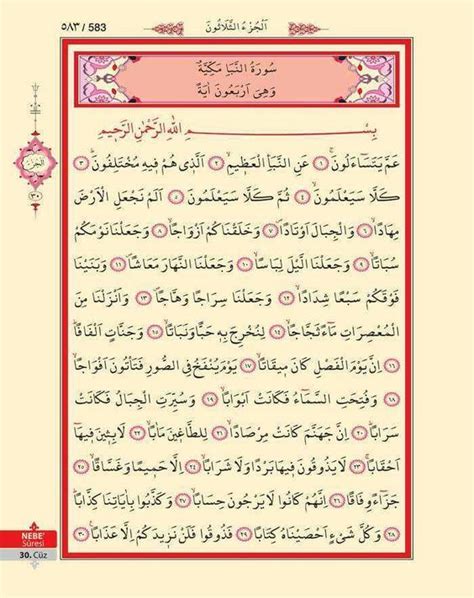 ٥٨٣ / 583
اَلْجُزْءُ الثَّلَاثُونَ
سُورَةُ النَّبَأِ مَكِّيَّةٌ
وَهِيَ اَرْبَعُونَ اٰيَةً
بِسْــــــمِ اللّٰهِ الرَّحْمٰنِ الرَّحٖيمِ
عَمَّ يَتَسَٓاءَلُونَۚ ﴿١﴾ عَنِ النَّبَأِ الْعَظٖيمِۙ ﴿٢﴾ اَلَّذٖي هُمْ فٖيهِ مُخْتَلِفُونَؕ ﴿٣﴾
كَلَّا سَيَعْلَمُونَۙ ﴿٤﴾ ثُمَّ كَلَّا سَيَعْلَمُونَ ﴿٥﴾ اَلَمْ نَجْعَلِ الْاَرْضَ
مِهَادًاۙ ﴿٦﴾ وَالْجِبَالَ اَوْتَادًاۙ ﴿٧﴾ وَخَلَقْنَاكُمْ اَزْوَاجًاۙ ﴿٨﴾ وَجَعَلْنَا نَوْمَكُمْ
سُبَاتًاۙ ﴿٩﴾ وَجَعَلْنَا الَّيْلَ لِبَاسًاۙ ﴿١٠﴾ وَجَعَلْنَا النَّهَارَ مَعَاشًاۖ ﴿١١﴾ وَبَنَيْنَا
فَوْقَكُمْ سَبْعًا شِدَادًاۙ ﴿١٢﴾ وَجَعَلْنَا سِرَاجًا وَهَّاجًاۖ ﴿١٣﴾ وَاَنْزَلْنَا مِنَ
الْمُعْصِرَاتِ مَٓاءً ثَجَّاجًاۙ ﴿١٤﴾ لِنُخْرِجَ بِهٖ حَبًّا وَنَبَاتًاۙ ﴿١٥﴾ وَجَنَّاتٍ اَلْفَافًاؕ
﴿١٦﴾ اِنَّ يَوْمَ الْفَصْلِ كَانَ مٖيقَاتًاۙ ﴿١٧﴾ يَوْمَ يُنْفَخُ فِي الصُّورِ فَتَأْتُونَ اَفْوَاجًاۙ
﴿١٨﴾ وَفُتِحَتِ السَّمَٓاءُ فَكَانَتْ اَبْوَابًاۙ ﴿١٩﴾ وَسُيِّرَتِ الْجِبَالُ فَكَانَتْ
سَرَابًاؕ ﴿٢٠﴾ اِنَّ جَهَنَّمَ كَانَتْ مِرْصَادًاۙ ﴿٢١﴾ لِلطَّاغٖينَ مَاٰبًاۙ ﴿٢٢﴾ لَابِثٖينَ فٖيهَٓا
اَحْقَابًاۚ ﴿٢٣﴾ لَا يَذُوقُونَ فٖيهَا بَرْدًا وَلَا شَرَابًاۙ ﴿٢٤﴾ اِلَّا حَمٖيمًا وَغَسَّاقًاۙ ﴿٢٥﴾
جَزَٓاءً وِفَاقًاؕ ﴿٢٦﴾ اِنَّهُمْ كَانُوا لَا يَرْجُونَ حِسَابًاۙ ﴿٢٧﴾ وَكَذَّبُوا بِاٰيَاتِنَا كِذَّابًاؕ
﴿٢٨﴾ وَكُلَّ شَيْءٍ اَحْصَيْنَاهُ كِتَابًاۙ ﴿٢٩﴾ فَذُوقُوا فَلَنْ نَزٖيدَكُمْ اِلَّا عَذَابًاۚ ﴿٣٠﴾
اَلْجُزْءُ
٣٠
NEBE'
Sûresi
30. Cüz